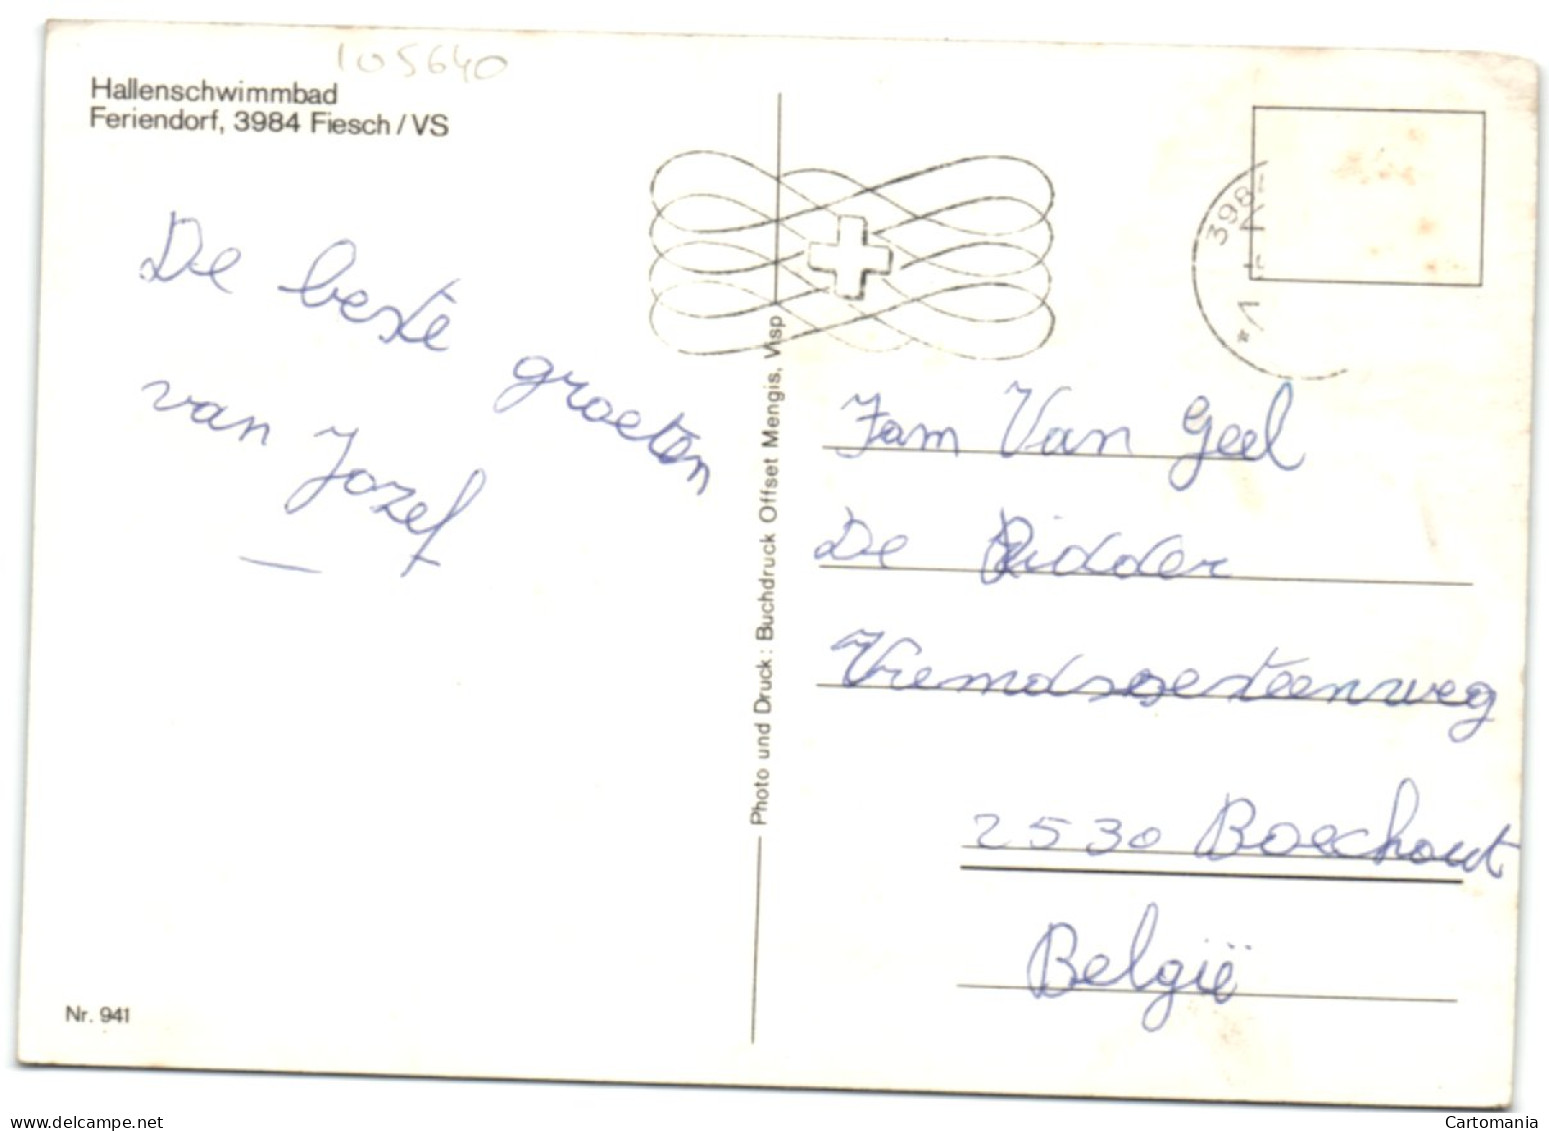 105640
Hallenschwimmbad
Feriendorf, 3984 Fiesch / VS
De beste groeten
van Jozef
Nr. 941
Photo und Druck: Buchdruck Offset Mengis, Visp
398
Fam Van Geel
De Ridder
Vremdsesteenweg
2530 Boechout
België
www.delcampe.net
Cartomania